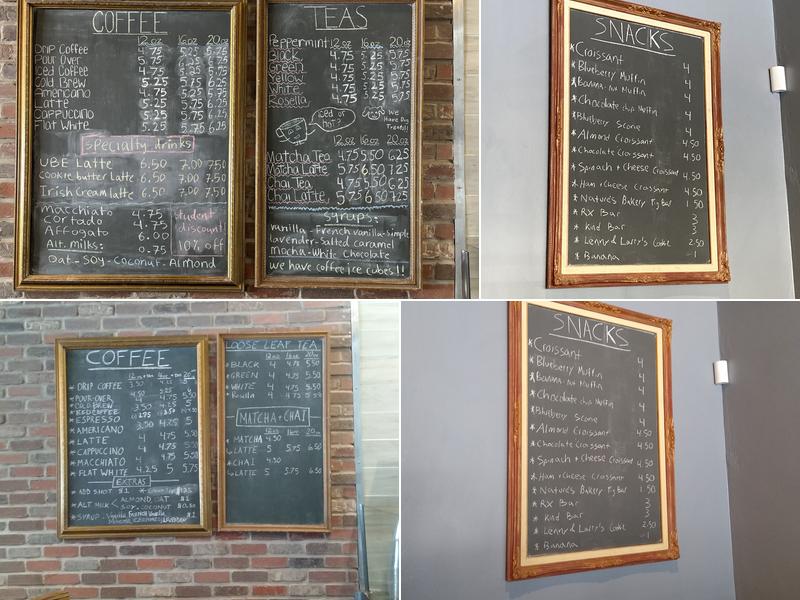 COFFEE
12 oz 16 oz 20 oz
Drip Coffee 4.75 5.25 5.75
Pour Over 5.75 6.25
Iced Coffee 4.75 5.25
Cold Brew 5.25 5.75 6.25
Americano 4.75 5.25 5.75
Latte 5.25 5.75 6.25
Cappuccino 5.25 5.75 6.25
Flat White 5.25 5.75 6.25
specialty drinks
UBE Latte 6.50 7.00 7.50
Cookie butter Latte 6.50 7.00 7.50
Irish Cream latte 6.50 7.00 7.50
Macchiato 4.75
Cortado 4.75
Affogato 6.00
Alt. milks: 0.75
Student discount! 10% off
Oat - SOY - Coconut - Almond
TEAS
12oz 16oz 20oz
Peppermint 4.75 5.25 5.75
Black 4.75 5.25 5.75
Green 4.75 5.25 5.75
Yellow 4.75 5.25 5.75
White 4.75 5.25 5.75
Rosella 4.75 5.25 5.75
iced or hot?
We Have Dog Treats!!
12 oz 16 oz 20 oz
Matcha Tea 4.75 5.50 6.25
Matcha Latte 5.75 6.50 7.25
Chai Tea 4.75 5.50 6.25
Chai Latte 5.75 6.50 7.25
syrups:
vanilla - French vanilla - simple
lavender - Salted caramel
mocha - White Chocolate
we have coffee ice cubes!!
SNACKS
* Croissant 4
* Blueberry Muffin 4
* Banana Nut Muffin 4
* Chocolate chip Muffin 4
* Blueberry Scone 4
* Almond Croissant 4.50
* Chocolate Croissant 4.50
* Spinach + Cheese Croissant 4.50
* Ham + Cheese Croissant 4.50
* Nature's Bakery Fig Bar 1.50
* RX Bar 3
* Kind Bar 3
* Lenny & Larry's Cookie 2.50
* Banana 1
COFFEE
12 oz 16oz 20oz
* DRIP COFFEE 3.50
* POUR-OVER 4.50
* COLD BREW 3.50 4.25 5
* ICED COFFEE
* ESPRESSO
* AMERICANO 3.50 4.25 5
* LATTE 4 4.75 5.50
* CAPPUCCINO 4 4.75 5.50
* MACCHIATO 4 4.75 5.50
* FLAT WHITE 4.25 5 5.75
EXTRAS
* ADD SHOT $1
* ALT MILK ALMOND, OAT $1
SOY, COCONUT $0.50
* SYRUP Vanilla French Vanilla
LAVENDER $1
LOOSE LEAF TEA
12oz 16oz 20oz
* BLACK 4 4.75 5.50
* GREEN 4 4.75 5.50
* WHITE 4 4.75 5.50
* Rosella 4 4.75 5.50
MATCHA + CHAI
12oz 16oz 20oz
* MATCHA 4.50
LATTE 5 5.75 6.50
* CHAI 4.50
LATTE 5 5.75 6.50
SNACKS
* Croissant 4
* Blueberry Muffin 4
* Banana Nut Muffin 4
* Chocolate chip Muffin 4
* Blueberry Scone 4
* Almond Croissant 4.50
* Chocolate Croissant 4.50
* Spinach + Cheese Croissant 4.50
* Ham + Cheese Croissant 4.50
* Nature's Bakery Fig Bar 1.50
* RX Bar 3
* Kind Bar 3
* Lenny & Larry's Cookie 2.50
* Banana 1